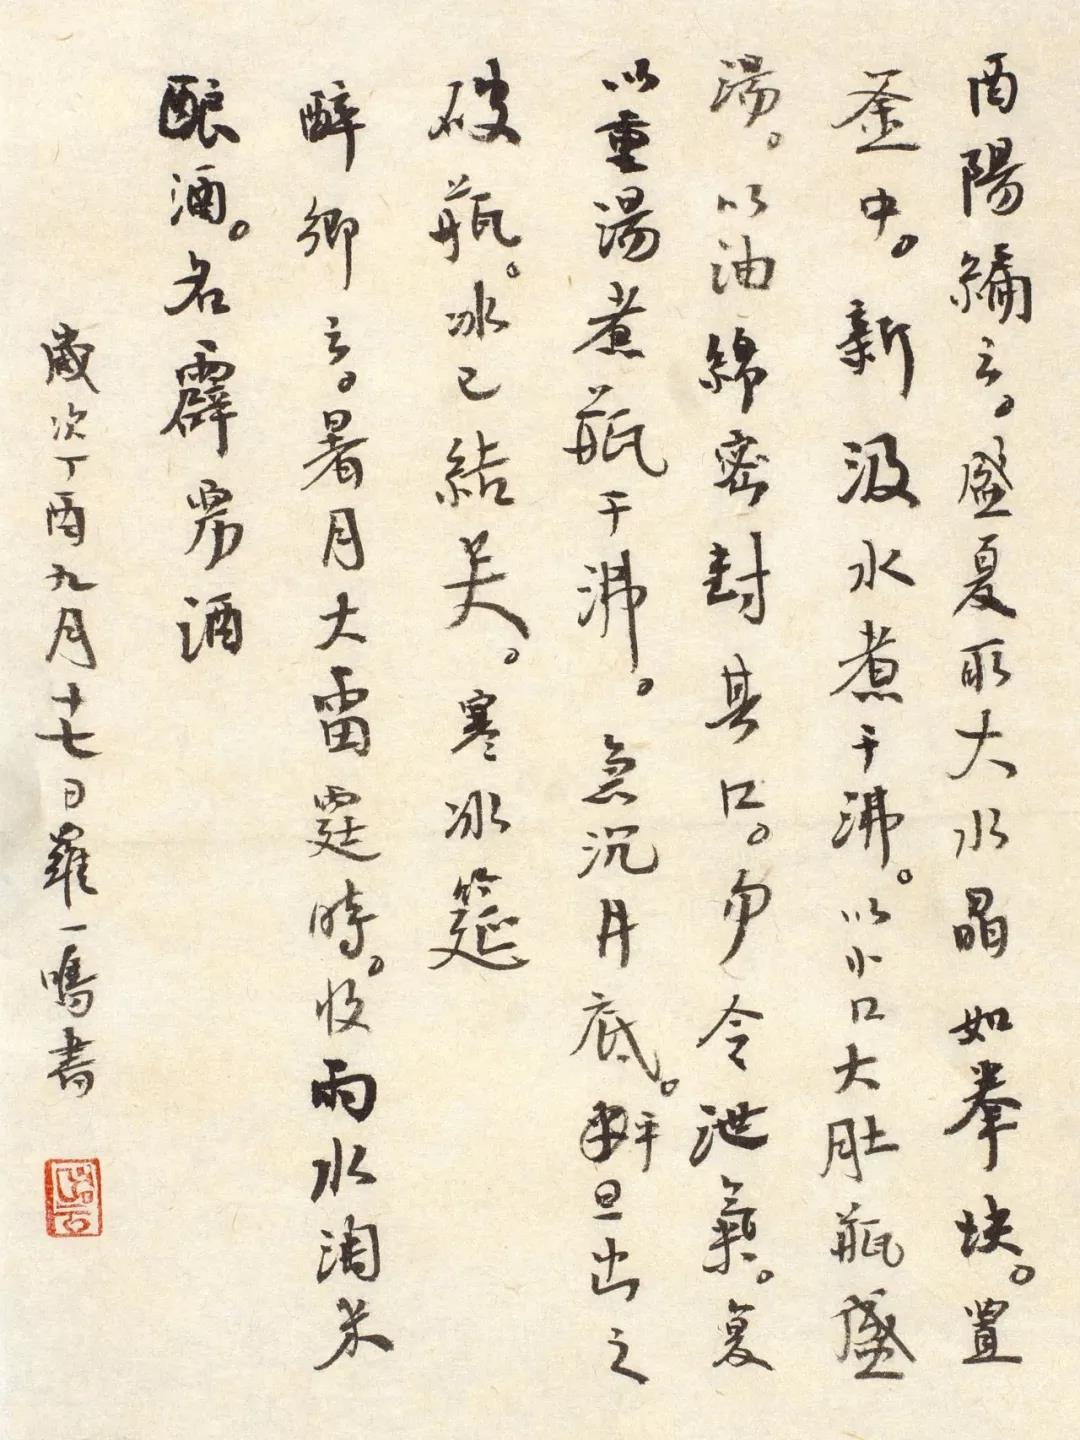 酉陽編云。盛夏取大水晶如拳块。置
釜中。新汲水煮千沸。以小口大肚瓶盛
湯。以油綿密封其口。勿令泄氣。复
以重湯煮瓶千沸。急沉井底。平旦出之
破瓶。冰已結矣。寒冰筵
醉鄉云。暑月大雷霆時。收雨水淘米
酿酒。名霹雳酒
歲次丁酉九月十七日羅一鳴書